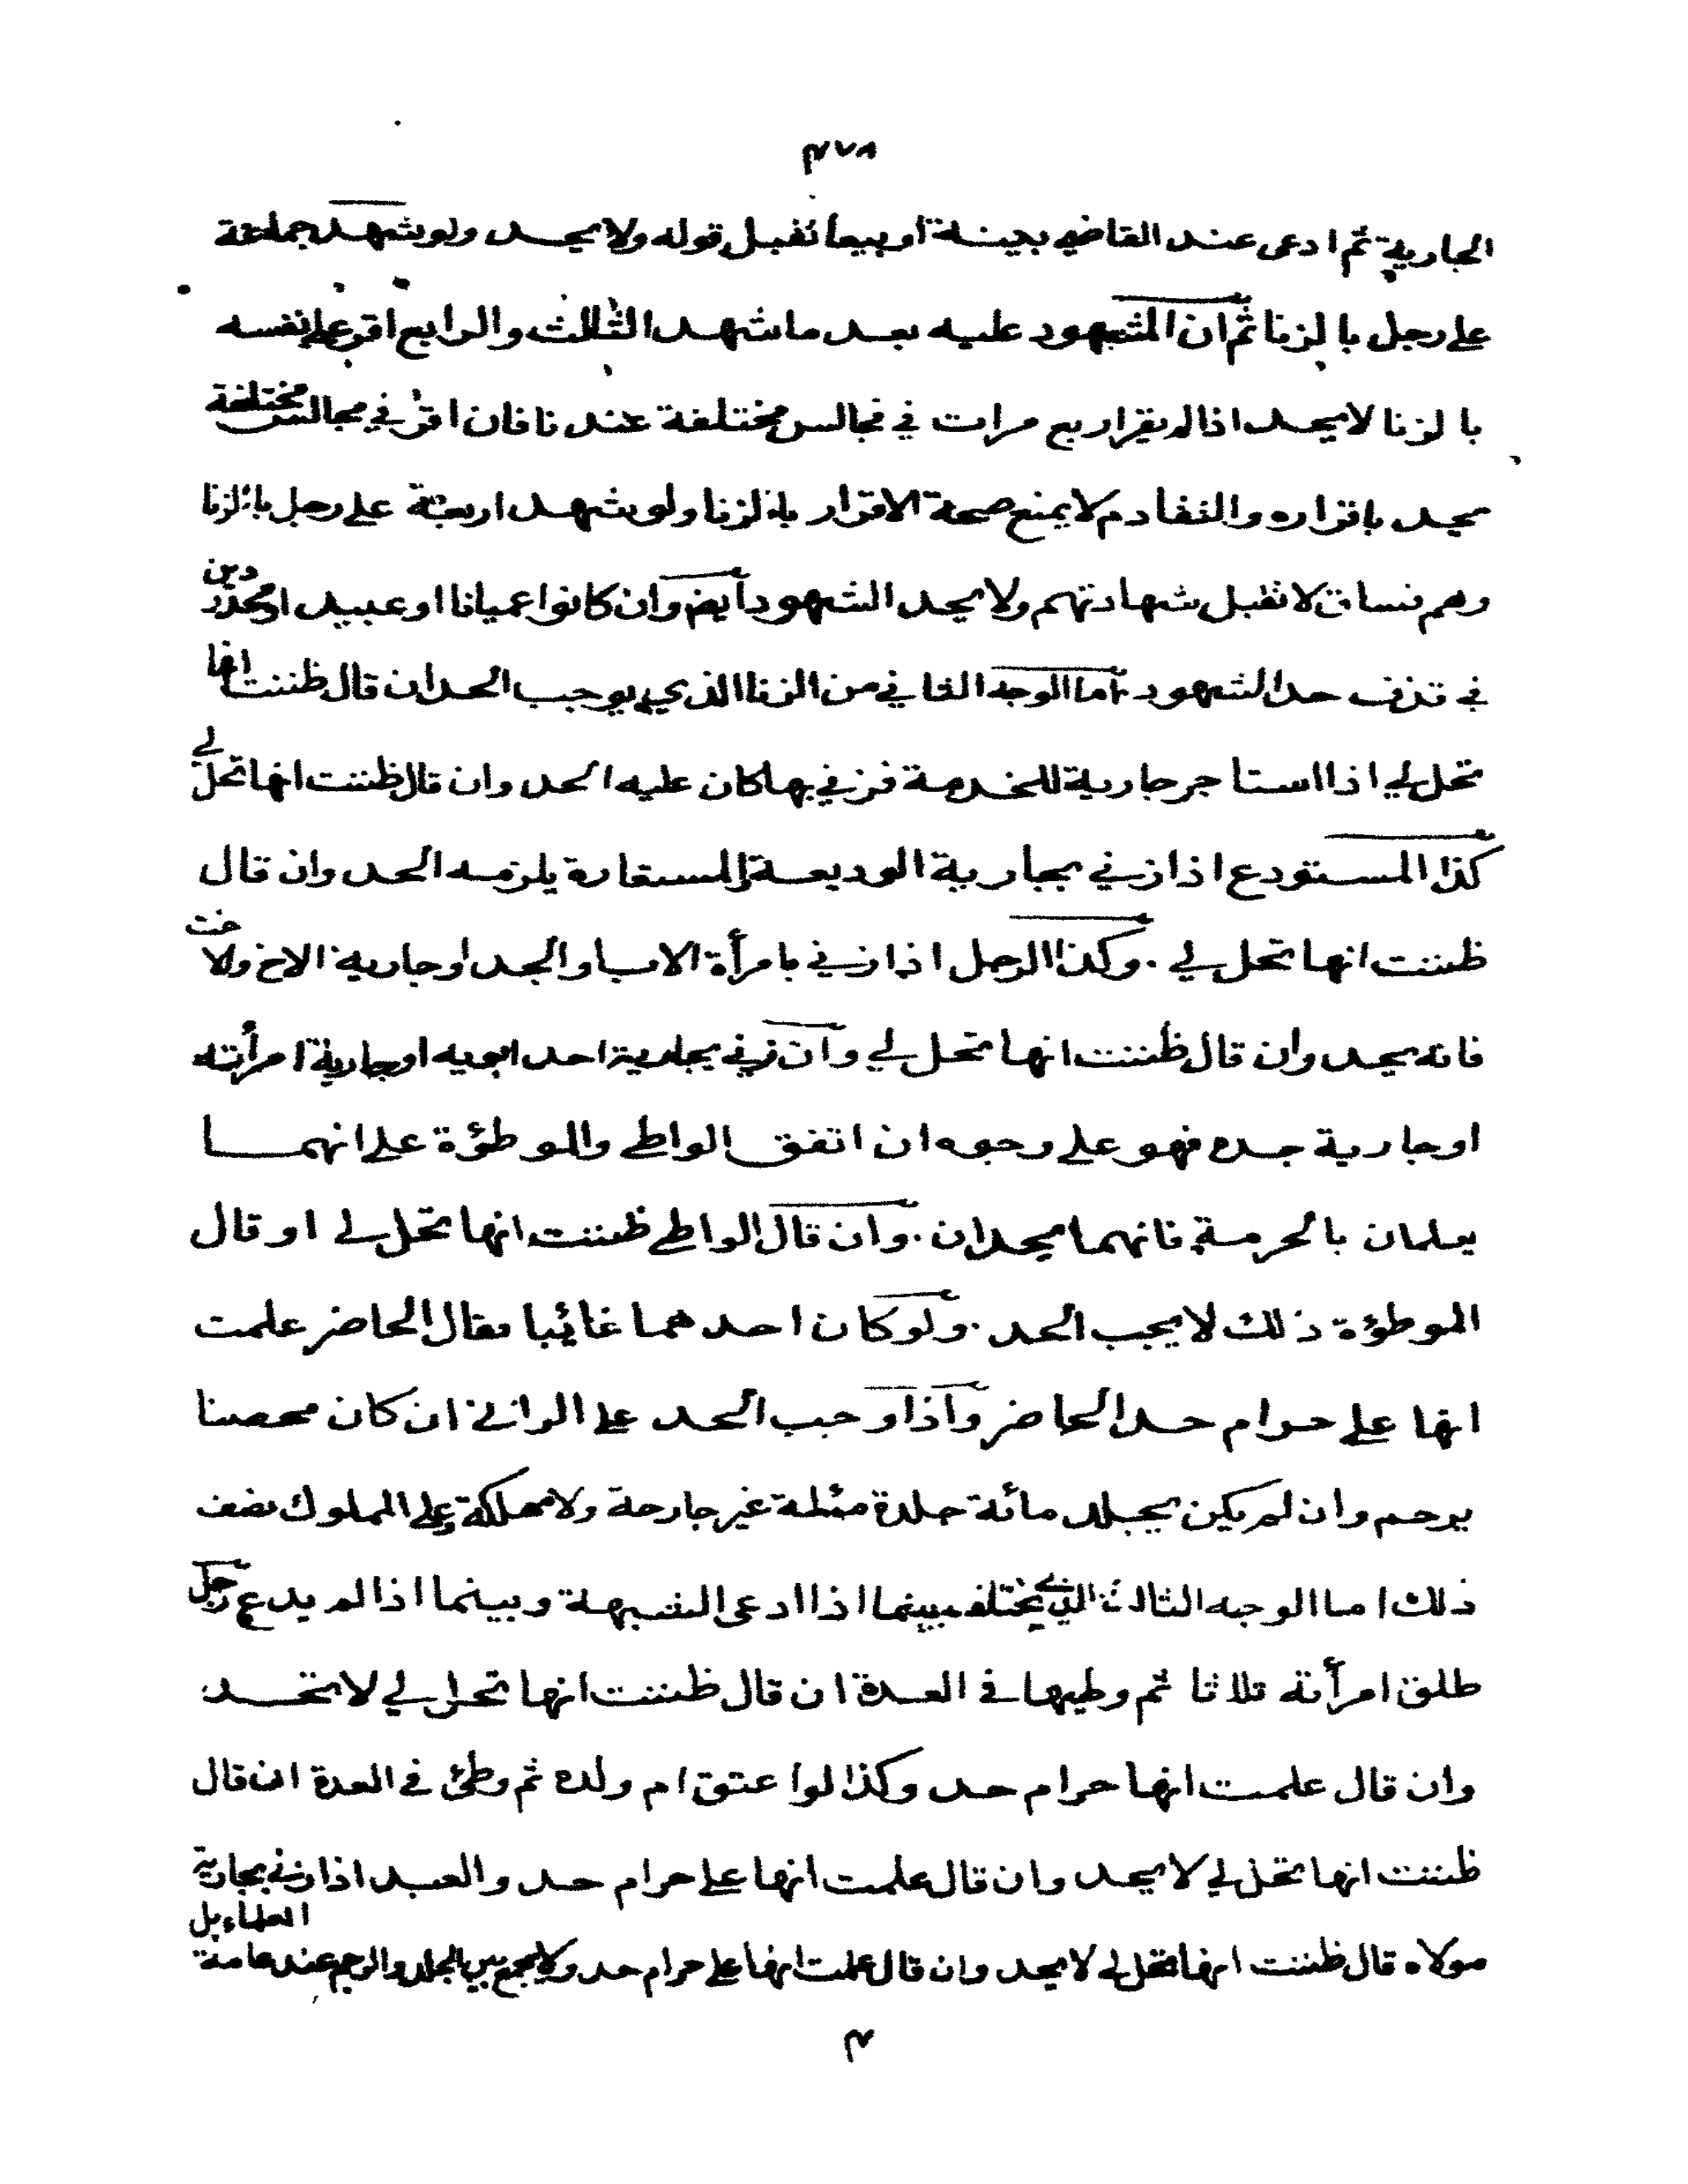 ٣٧٨
الجارية ثم ادعى عند القاضي بينة او بيعا تقبل قوله ولا يحد ولو شهد جماعة
على رجل بالزنا ثم ان المشهود عليه بعد ما شهد الثالث والرابع اقر على نفسه
بالزنا لا يحد اذا لم يقر اربع مرات في مجالس مختلفة عندنا فان اقر في مجالس مختلفة
يحد باقراره والتقادم لا يمنع صحة الاقرار بالزنا ولو شهد اربعة على رجل بالزنا
وهم فساق لا تقبل شهادتهم ولا يحد الشهود ايض وان كانوا عميانا او عبيد او محدودين
في قذف حد الشهود اما الوجه الثاني من الزنا الذي يوجب الحد ان قال ظننت انها
تحل لي اذا استاجر جارية للخدمة فزني بها كان عليه الحد وان قال ظننت انها تحل لي
كذا المستودع اذا زني بجارية الوديعة والمستعارة يلزمه الحد وان قال
ظننت انها تحل لي . وكذا الرجل اذا زني بامرأة الاب او الجد او جارية الاخ والاخت
فانه يحد وان قال ظننت انها تحل لي وان زني بجارية احد ابويه او جارية امرأته
او جارية جده فهو على وجوه ان اتفق الواطي والموطؤة على انهما
يعلمان بالحرمة فانهما يحدان . وان قال الواطي ظننت انها تحل لي او قال
الموطؤة ذلك لا يجب الحد . ولو كان احدهما غائبا فقال الحاضر علمت
انها على حرام حد الحاضر واذا وجب الحد على الزاني ان كان محصنا
يرجم وان لم يكن يجلد مائة جلدة غير جارحة ولا مهلكة وعلى المملوك نصف
ذلك اما الوجه الثالث الذي يختلف بينما اذا ادعى الشبهة وبينما اذا لم يدع رجل
طلق امرأته ثلاثا ثم وطيها في العدة ان قال ظننت انها تحل لي لا تحد
وان قال علمت انها حرام حد وكذا لو اعتق ام ولده ثم وطئ في العدة ان قال
ظننت انها تحل لي لا يحد وان قال علمت انها على حرام حد والعبد اذا زني بجارية
مولاه قال ظننت انها تحل لي لا يحد وان قال علمت انها على حرام حد ولا يجمع بين الجلد والرجم عند عامة العلماء بل